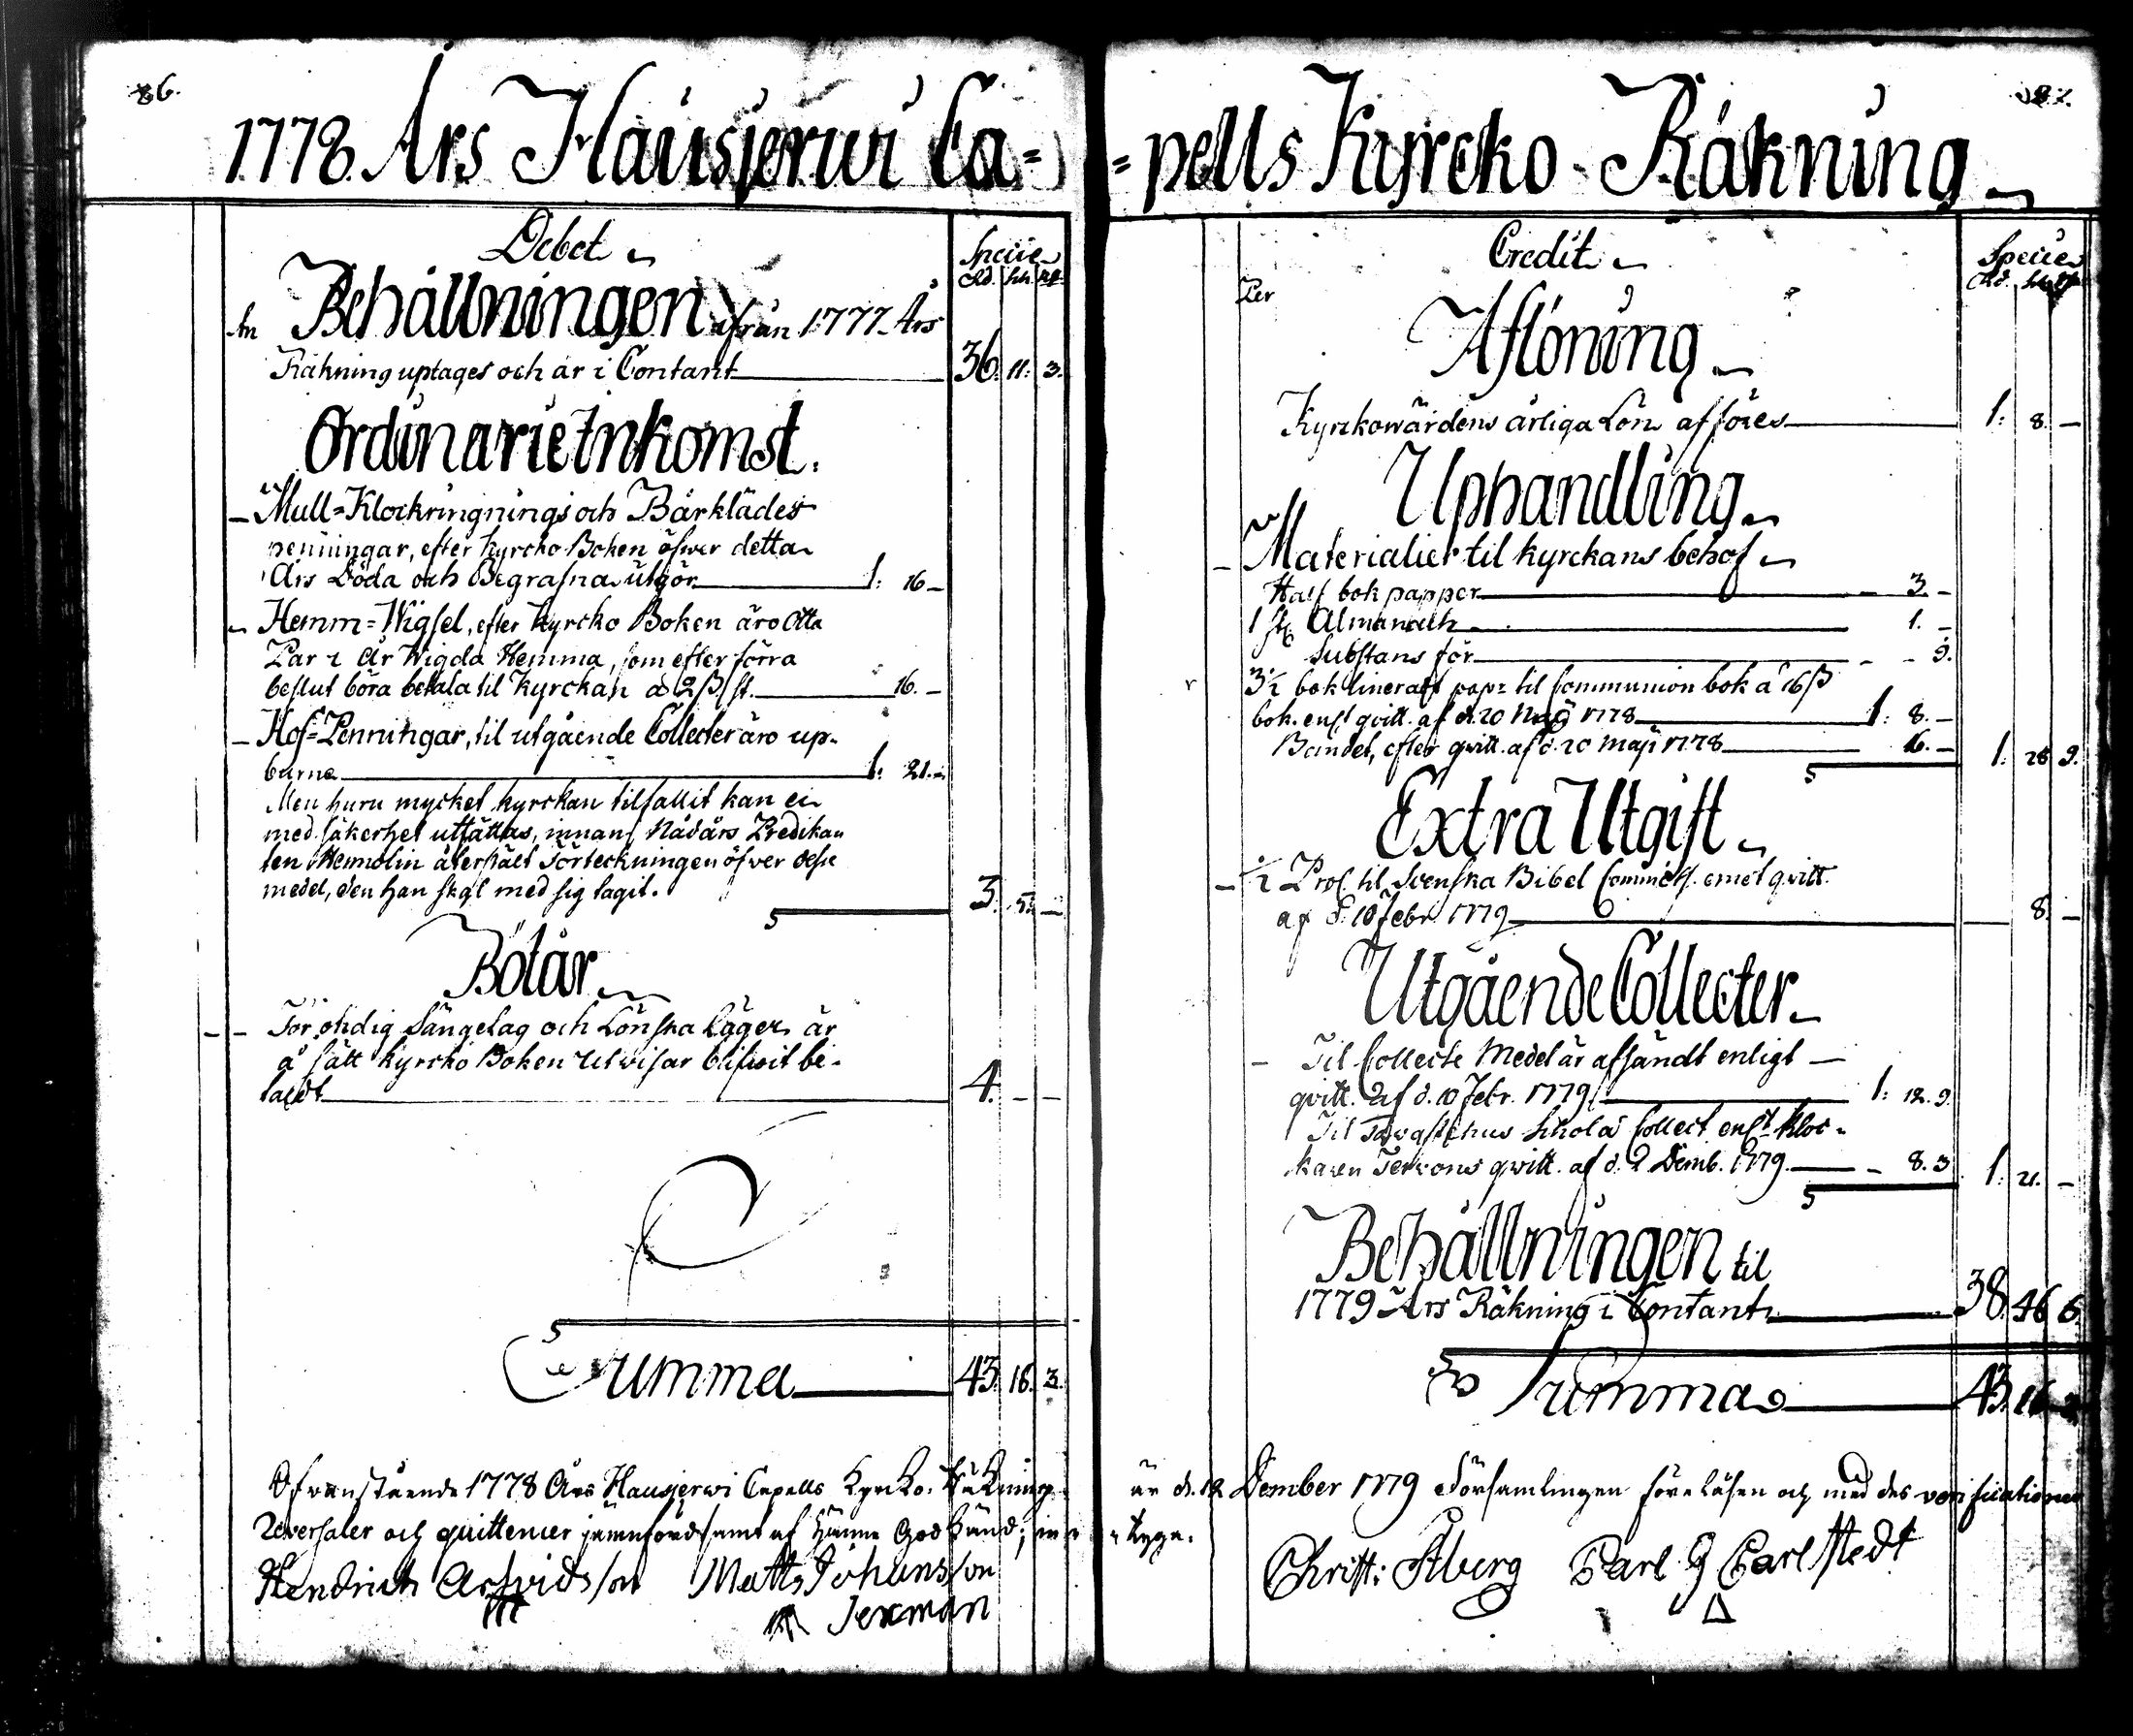 86.
1778 Års Hausjerwi Ca=
Debet
Specie
Rd. sk. rst.
An Behållningen ifrån 1777 Års
Räkning uptages och är i Contant 36. 11. 3.
Ordinarie Inkomst.
Mull=Klockringnings och Bårklädes
penningar, efter Kyrcko Boken öfwer detta
Års Döda och Begrafna utgör 1: 16 –
Hemm=Wigsel, efter Kyrcko Boken äro Otta
Par i År Wigda Hemma, som efter förra
beslut böra betala til Kyrckan à 2 ß. st. 16. –
Hof=Penningar, til utgående Collecter äro up-
burne 1: 21. –
Men huru mycket kyrckan tilfallit kan ei
med säkerhet utsättas, innan Nådårs Predikan
ten Hemolin återstält Förteckningen öfwer desse
medel, den han skal med sig tagit. 3. 5. –
Böter
För otidig Sängelag och Lönska läger är
å sätt Kyrcko Boken utwisar blifwit be-
taldt 4. – –
Summa 43. 16. 3.
Ofwanstående 1778 Års Hausjerwi Capells Kyrko-Räkning
Reversaler och quittencer jemnförd samt af henne Godkänd; in-
Hendrich Arfvidsson Matts Johansson
Jerman
87.
=pells Kyrcko-Räkning
Credit
Specie
Rd. sk. rst.
Per
Aflöning
Kyrckowärdens årliga Lön afföres 1: 8. –
Uphandling
Materialier til kyrckans behof
Half bok papper 3. –
1 st. Almanach 1. –
Substans för – – 9.
3½ bok lineradt papr til Communion bok à 16 ß
bok. enl. qvitt. af d. 20 Maji 1778 1: 8. –
Bandet, efter qvitt. af d. 20 Maji 1778 16. – 1. 28 9.
Extra Utgift
½ Pros. til Svenska Bibel Commiss. emot qvitt.
af d. 10 Febr. 1779 8. –
Utgående Collecter
Til Collecte Medel är afsändt enligt
qvitt. af d. 10 Febr. 1779 1: 12. 9.
Til Tavastehus Schola Collect enl. Kloc-
karen qvitt. af d. 2 Decemb. 1779 – 8. 3 1: 21. –
Behållningen til
1779 Års Räkning i Contant 38. 46 6.
Summa 43. 16 3.
är d. 12 December 1779 Församlingen föreläsen och med des verificationer
tyga.
Christ: Åberg Carl G Carlstedt